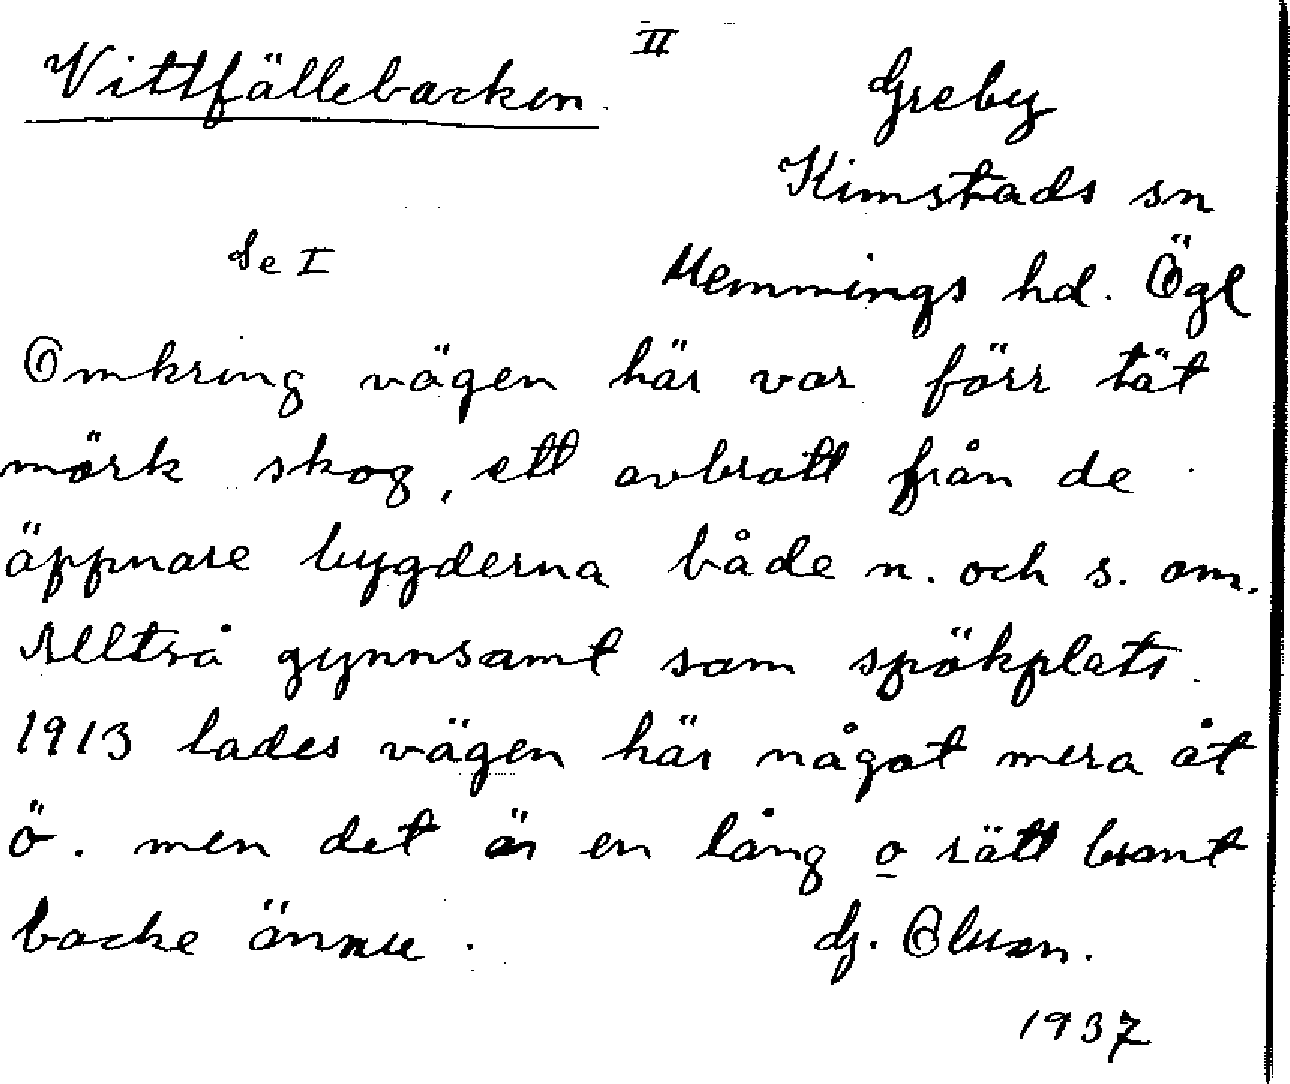 Vittfällebacken.
II
Greby
Kimstads sn
Se I
Memmings hd. Ögl
Omkring vägen här var förr tät
mörk skog, ett avbrott från de
äppnare bygderna både n. och s. om.
Alltså gynnsamt som spökplats.
1913 lades vägen här något mera åt
ö. men det är en lång o rätt brant
backe ännu.
G.
1937